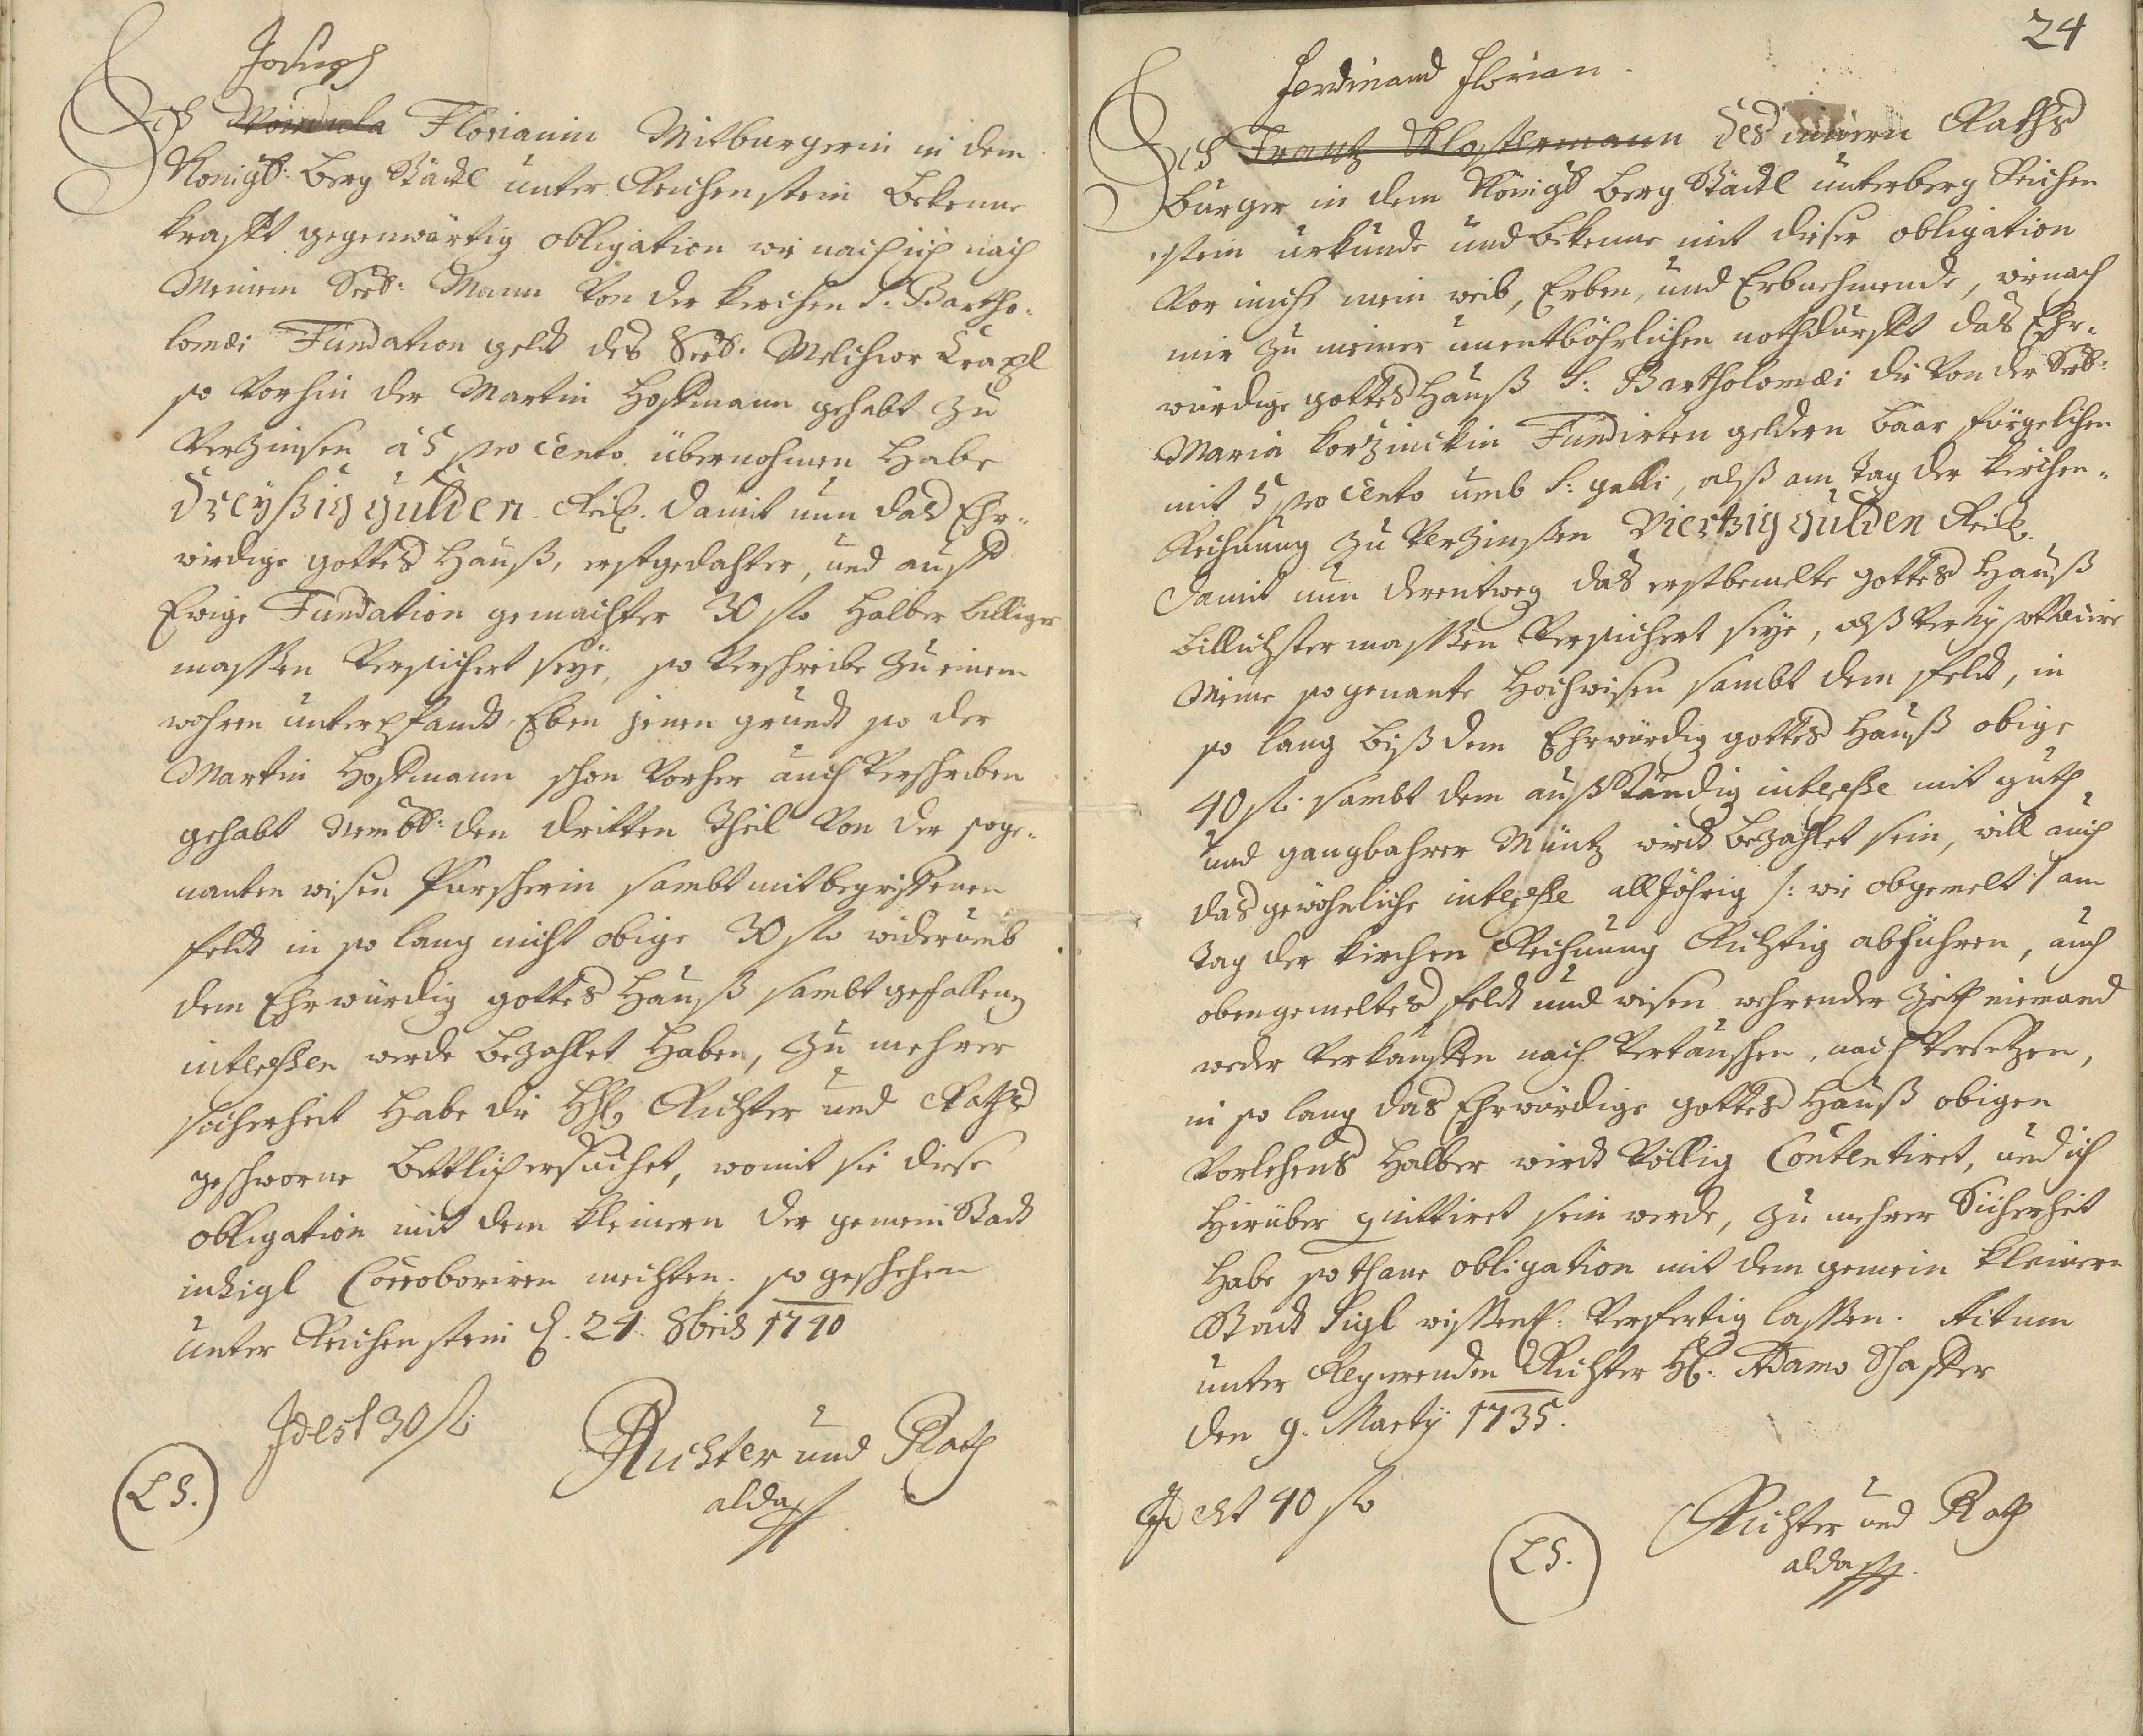 Joseph
Ich Florianin Mitburgerin in dem
Königl: Berg Stadtl unter Reichenstein bekenne
krafft gegenwärtig obligation wie nach ich nach
Meinem Seel: Mann von der kirchen S: Bartho-
lomæi Fundation geldt des Seel: Melchior Krapl
so vorhin der Martin Hoffmann gehabt zu
verzinsen à 5 pro cento übernohmen habe
dreyßig gulden Rein. damit nun das Ehr-
würdige gottes Hauß, erstgedachter, und auff
Ewige Fundation gemachter 30 fl halber billiger
massen versichert seÿe, so verschreibe zu einem
wahren unterpfandt Eben jenen grundt so der
Martin Hoffmann schon vorher auch verschriben
gehabt Nembl: den dritten theil von der soge-
nanten wisen Purscherin sambt mitbegriffenen
feldt in so lang nicht obige 30 fl widerumb
dem Ehrwürdig gottes Hauß sambt gefallenen
interessen werde bezahlet haben, zu mehrer
sicherheit habe die HH Richter und Raths
geschworne bittlich ersuchet, womit sie diese
obligation mit dem kleinern der gemein Stadt
insigl Corroboriren mechten. so geschehen
unter Reichenstein d. 24 8bris 1740
Id est 30 fl
Richter und Rath
alda
L S.
24
Ferdinand Florian.
Ich Frantz Klostermann des innern Raths
burger in dem Königl berg Stadtl unterberg Reichen
stein urkunde und bekenne mit dieser obligation
vor mich mein weib, Erben, und Erbnehmende, wienach
mir zu meiner unentböhrlichen nothdurfft das Ehr-
würdige gottes Hauß S: Bartholomæi die von der Seel:
Maria korzinckin Fundirten geldern baar fürgelichen
mit 5 pro cento umb S: galli, alß am tag der kirchen-
Rechnung zu verzinßen Viertzig gulden Rein.
damit nun derentweg das erstbemelte gottes Hauß
billichster massen versichert seÿe, alß verhypotecire
Meine sogenante Hochwisen sambt dem feldt, in
so lang biß dem Ehrwürdig gottes Hauß obige
40 fl. sambt dem außständig interesse mit guth
und gangbahrer Müntz wirdt bezahlet sein, will auch
das gewöhnliche interesse alljöhrig /: wie obgemelt :/ am
tag der kirchen Rechnung Richtig abführen, auch
obengemeltes feldt und wisen wehrender zeit niemand
weder verkauffen noch vertauschen, noch versetzen,
in so lang das Ehrwürdige gottes Hauß obigen
vorlehens halber wirdt völlig Contentiret, und ich
hierüber quittiret sein werde, zu mehrer Sicherheit
habe sothane obligation mit dem gemein kleinern
Stadt Sigl wissentl: verfertig lassen. Actum
unter Regierenden Richter H: Adamo Schaffer
den 9. Martÿ 1735.
Id est 40 fl
L S.
Richter und Rath
alda